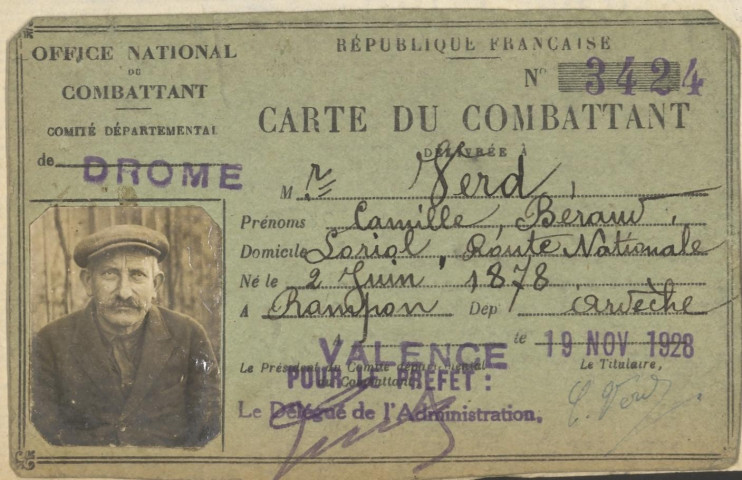 OFFICE NATIONAL
DU
COMBATTANT
COMITÉ DÉPARTEMENTAL
de DROME
RÉPUBLIQUE FRANÇAISE
N° 3424
CARTE DU COMBATTANT
DÉLIVRÉE À
M r Verd,
Prénoms Camille, Béraud,
Domicile Loriol, Route Nationale
Né le 2 Juin 1878
A Rampon Dep^t Ardèche
VALENCE le 19 NOV 1928
Le Président du Comité départemental
du Combattant,
Le Titulaire,
POUR LE PRÉFET :
Le Délégué de l'Administration,
C. Verd